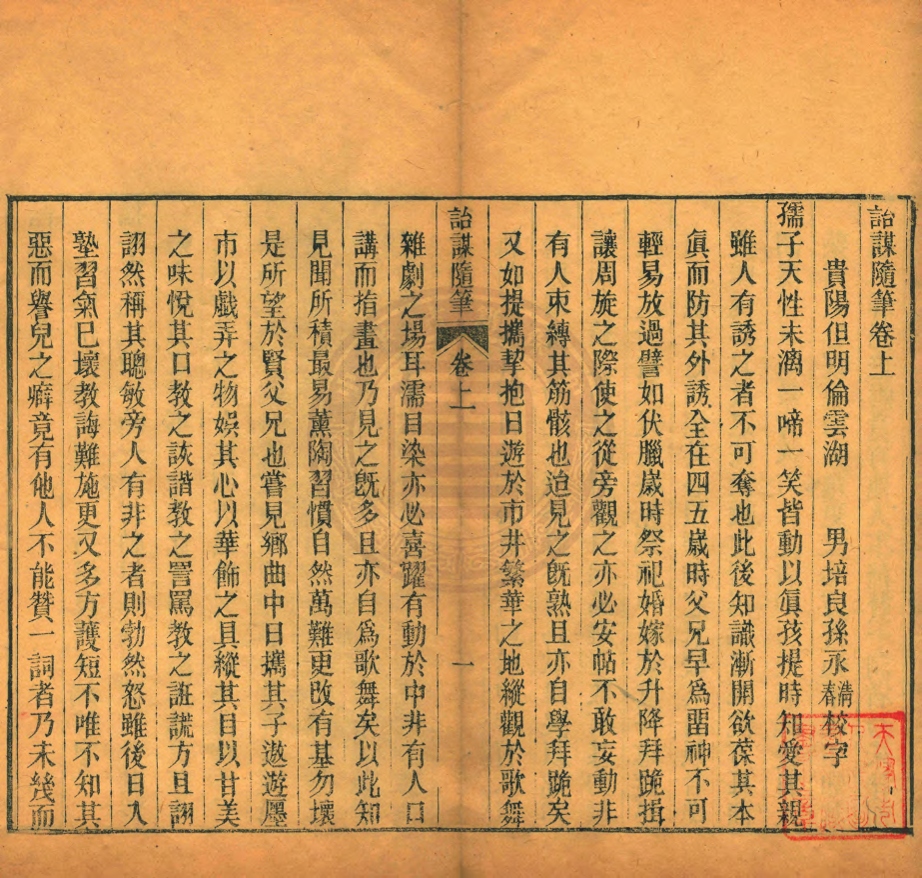 詒謀隨筆卷上
貴陽但明倫雲湖　男培良孫永清春校字
孺子天性未漓一啼一笑皆動以眞孩提時知愛其親
雖人有誘之者不可奪也此後知識漸開欲葆其本
眞而防其外誘全在四五歲時父兄早爲畱神不可
輕易放過譬如伏臘歲時祭祀婚嫁於升降拜跪揖
讓周旋之際使之從旁觀之亦必安帖不敢妄動非
有人束縛其筋骸也迨見之旣熟且亦自學拜跪矣
又如提攜挈抱日遊於市井繁華之地縱觀於歌舞
詒謀隨筆　卷上　一
雜劇之場耳濡目染亦必喜躍有動於中非有人口
講而指畫也乃見之旣多且亦自爲歌舞矣以此知
見聞所積最易薰陶習慣自然萬難更改有基勿壞
是所望於賢父兄也嘗見鄉曲中日攜其子遨遊廛
市以戲弄之物娛其心以華飾之具縱其目以甘美
之味悅其口教之詼諧教之詈罵教之誑謊方且詡
詡然稱其聰敏旁人有非之者則勃然怒雖後日入
塾習氣已壞教誨難施更又多方護短不唯不知其
惡而譽兒之癖竟有他人不能贊一詞者乃未幾而